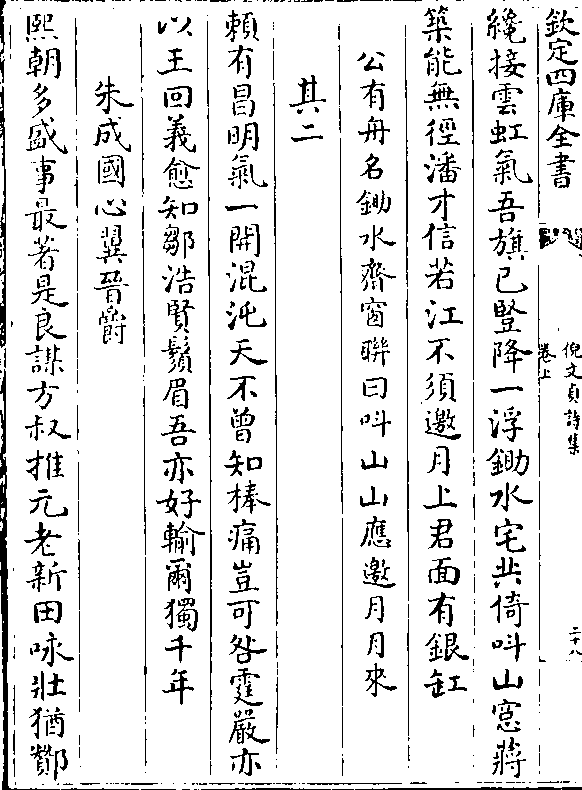 欽定四庫全書
倪文貞詩集
卷上
二十八
纔接雲虹氣吾旗已豎降一浮鋤水宅共倚呌山窻蔣
築能無徑潘才信若江不須邀月上君面有銀缸
公有舟名鋤水齋窗聯曰呌山山應邀月月來
其二
賴有昌明氣一開混沌天不曾知棒痛豈可咎霆嚴亦
以王回義愈知鄒浩賢鬚眉吾亦好輸爾獨千年
朱成國心翼晉爵
熙朝多盛事最著是良謀方叔推元老新田咏壯猶酇